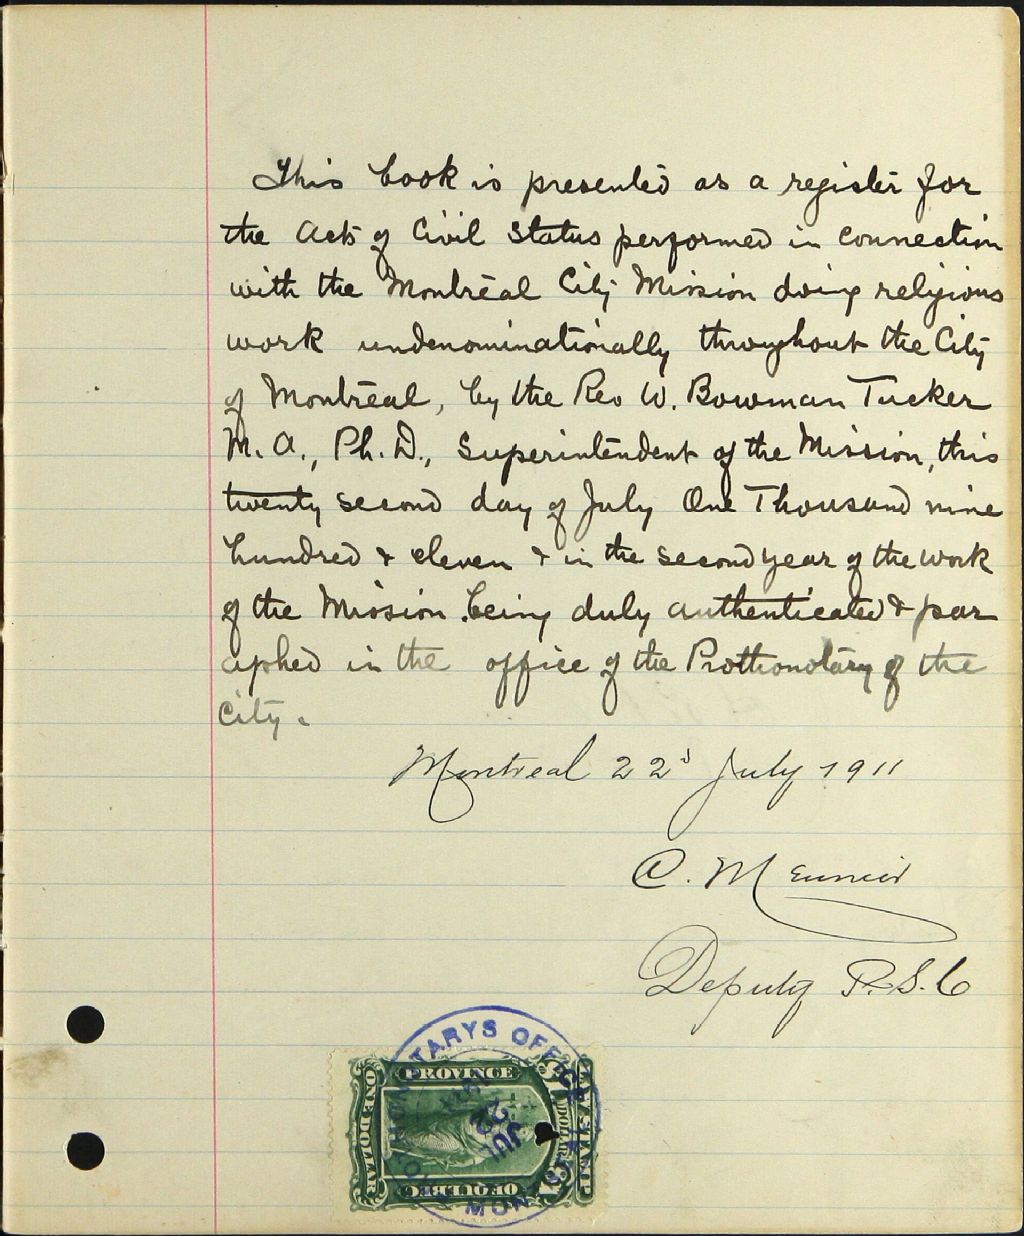 This book is presented as a register for
the Acts of Civil Status performed in connection
with the Montreal City Mission doing religious
work undenominationally throughout the City
of Montreal, by the Rev W. Bowman Tucker
M.A., Ph.D., Superintendent of the Mission, this
twenty second day of July One Thousand nine
hundred & eleven & in the second year of the work
of the Mission. being duly authenticated & par
aphed in the office of the Prothonotary of the
City.
Montreal 22d July 1911
C. Meunier
Deputy P.S.C
PROVINCE
OF QUEBEC
ONE DOLLAR
LAW STAMP
$1
DOLLAR
PROTHONOTARYS OFFICE
MONTREAL
22
JUL
1911